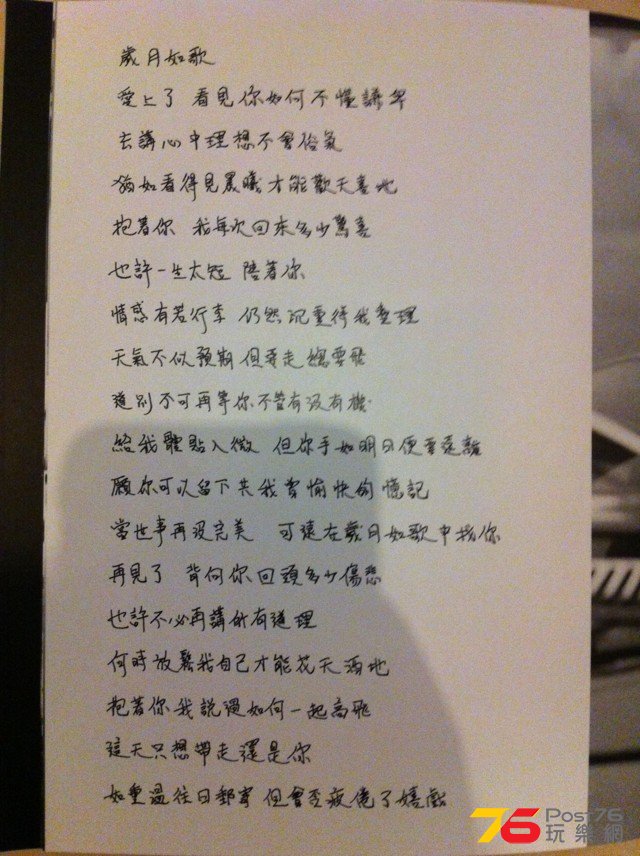 歲月如歌
愛上了 看見你如何不懂謙卑
去講心中理想不會俗氣
猶如看得見晨曦才能歡天喜地
抱著你 我每次回來多少驚喜
也許一生太短 陪著你
情感有若行李 仍然沉重待我整理
天氣不似預期 但要走 總要飛
道別不可再等你 不管有沒有機
給我體貼入微 但你手如明日便要遠離
願你可以留下共我曾愉快的憶記
當世事再沒完美 可遠在歲月如歌中找你
再見了 背向你回頭多少傷悲
也許不必再講所有道理
何時放鬆我自己才能花天酒地
抱著你我說過如何一起高飛
這天只想帶走還是你
如重溫往日郵寄 但會否疲倦了嬉戲
76 Post76
玩樂網